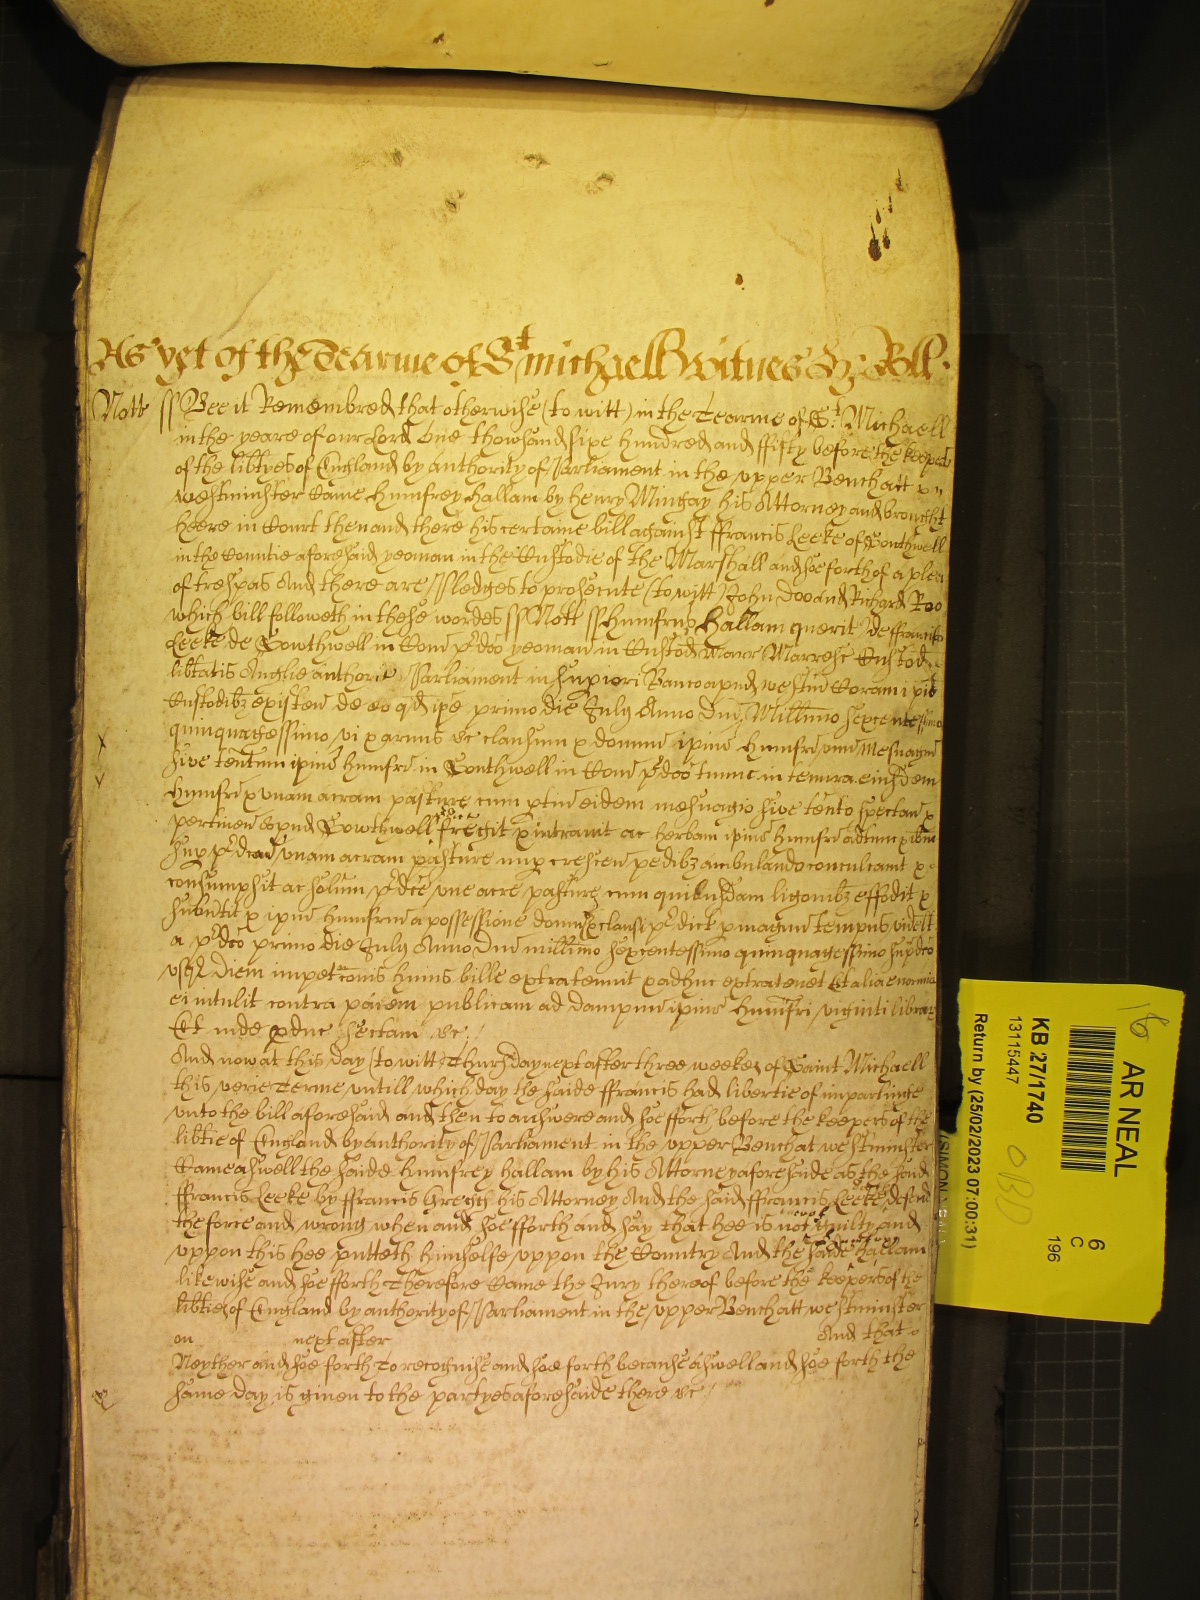 As yet of the Tearme of St Michaell Witnes &c Roll.
Nott ss Bee it Remembred that otherwise (to witt) in the Tearme of St. Michaell
in the yeare of our Lord One thowsand sixe hundred and ffifty before the keepers
of the lib̃tyes of England by authority of Parliament in the upper Bench att
Westminster Came Humfrey Hallam by Henry Mingay his Attorney and brought
heere in Court then and there his certaine bill against ffrancis Leeke of Southwell
in the Countie aforesaid yeoman in the Custodie of the Marshall and soe forth of a plea
of trespas And there are Pledges to prosecute (to witt) John Doo and Richard Roo
which bill followeth in these wordes ss Nott ss Humfrus Hallam querit de ffrancisco
Leeke de Sowthwell in Com p̃dco yeoman in Custod Marr Marresc Custod
lib̃tatis Anglie authorit Parliament in supiori Banco apud Westm̃ Coram ipis
Custodibz existen de eo qd ipe primo die July Anno Dni Millimo sexcentessimo
quinquagessimo vi x armis &c clausum x domum ipius Humfri unu Mesuagiu
sive ten̄tum ipius Humfri in Southwell in Com p̃dco tunc in tenura eiusdem
Humfri x unam acram pasture cum ptin eidem mesuagio sive ten̄to spectan x
pertinen apud Sowthwell p̃dca fregit x intravit ac herbam ipius Humfri adtunc ib̃m
sup p̃dcad unam acram pasture nup crescen pedibz ambulando conculcavit x
consumpsit ac solum p̃dce une acre pasture cum quibusdam ligonibz effodit x
subvtit x ipm Humfrm a possessione domus x clausi p̃dict p magnu tempus videlt
a p̃dco primo die July Anno Dni millimo sexcentessimo quinquagessimo supdco
usqz diem impetrac̃onis huius bille extratenuit x adhuc extratenet Et alia enormia
ei intulit contra pacem publicam ad dampnu ipius Humfri viginti librar
Et inde pduc sectam &c
And now at this day (to witt) Thursday next after three weekes of Saint Michaell
this verie Terme untill which day the saide ffrancis had libertie of imparlinge
unto the bill aforesaid and then to answere and soe fforth before the keepers of the
lib̃tie of England by authority of Parliament in the upper Bench at Westminster
Came aswell the saide Humfrey Hallam by his Attorney aforesaide as the said
ffrancis Leeke by ffrancis Gregg his Attorney And the said ffrancis Leeke defend
the force and wrong when and soe fforth and say that hee is not guilty and
uppon this hee putteth himselfe uppon the Country And the saide Hallam
likewise and soe fforth Therefore Came the Jury thereof before the keepers of the
lib̃tie of England by authority of Parliament in the upper Bench att Westminster
on next after And that
Neyther and soe forth To recognise and soe forth because aswell and soe forth the
same day is given to the partyes aforesaide there &c
AR NEAL
KB 27/1740
13115447
Return by (25/02/2023 07:00:31)
6
C
196
16